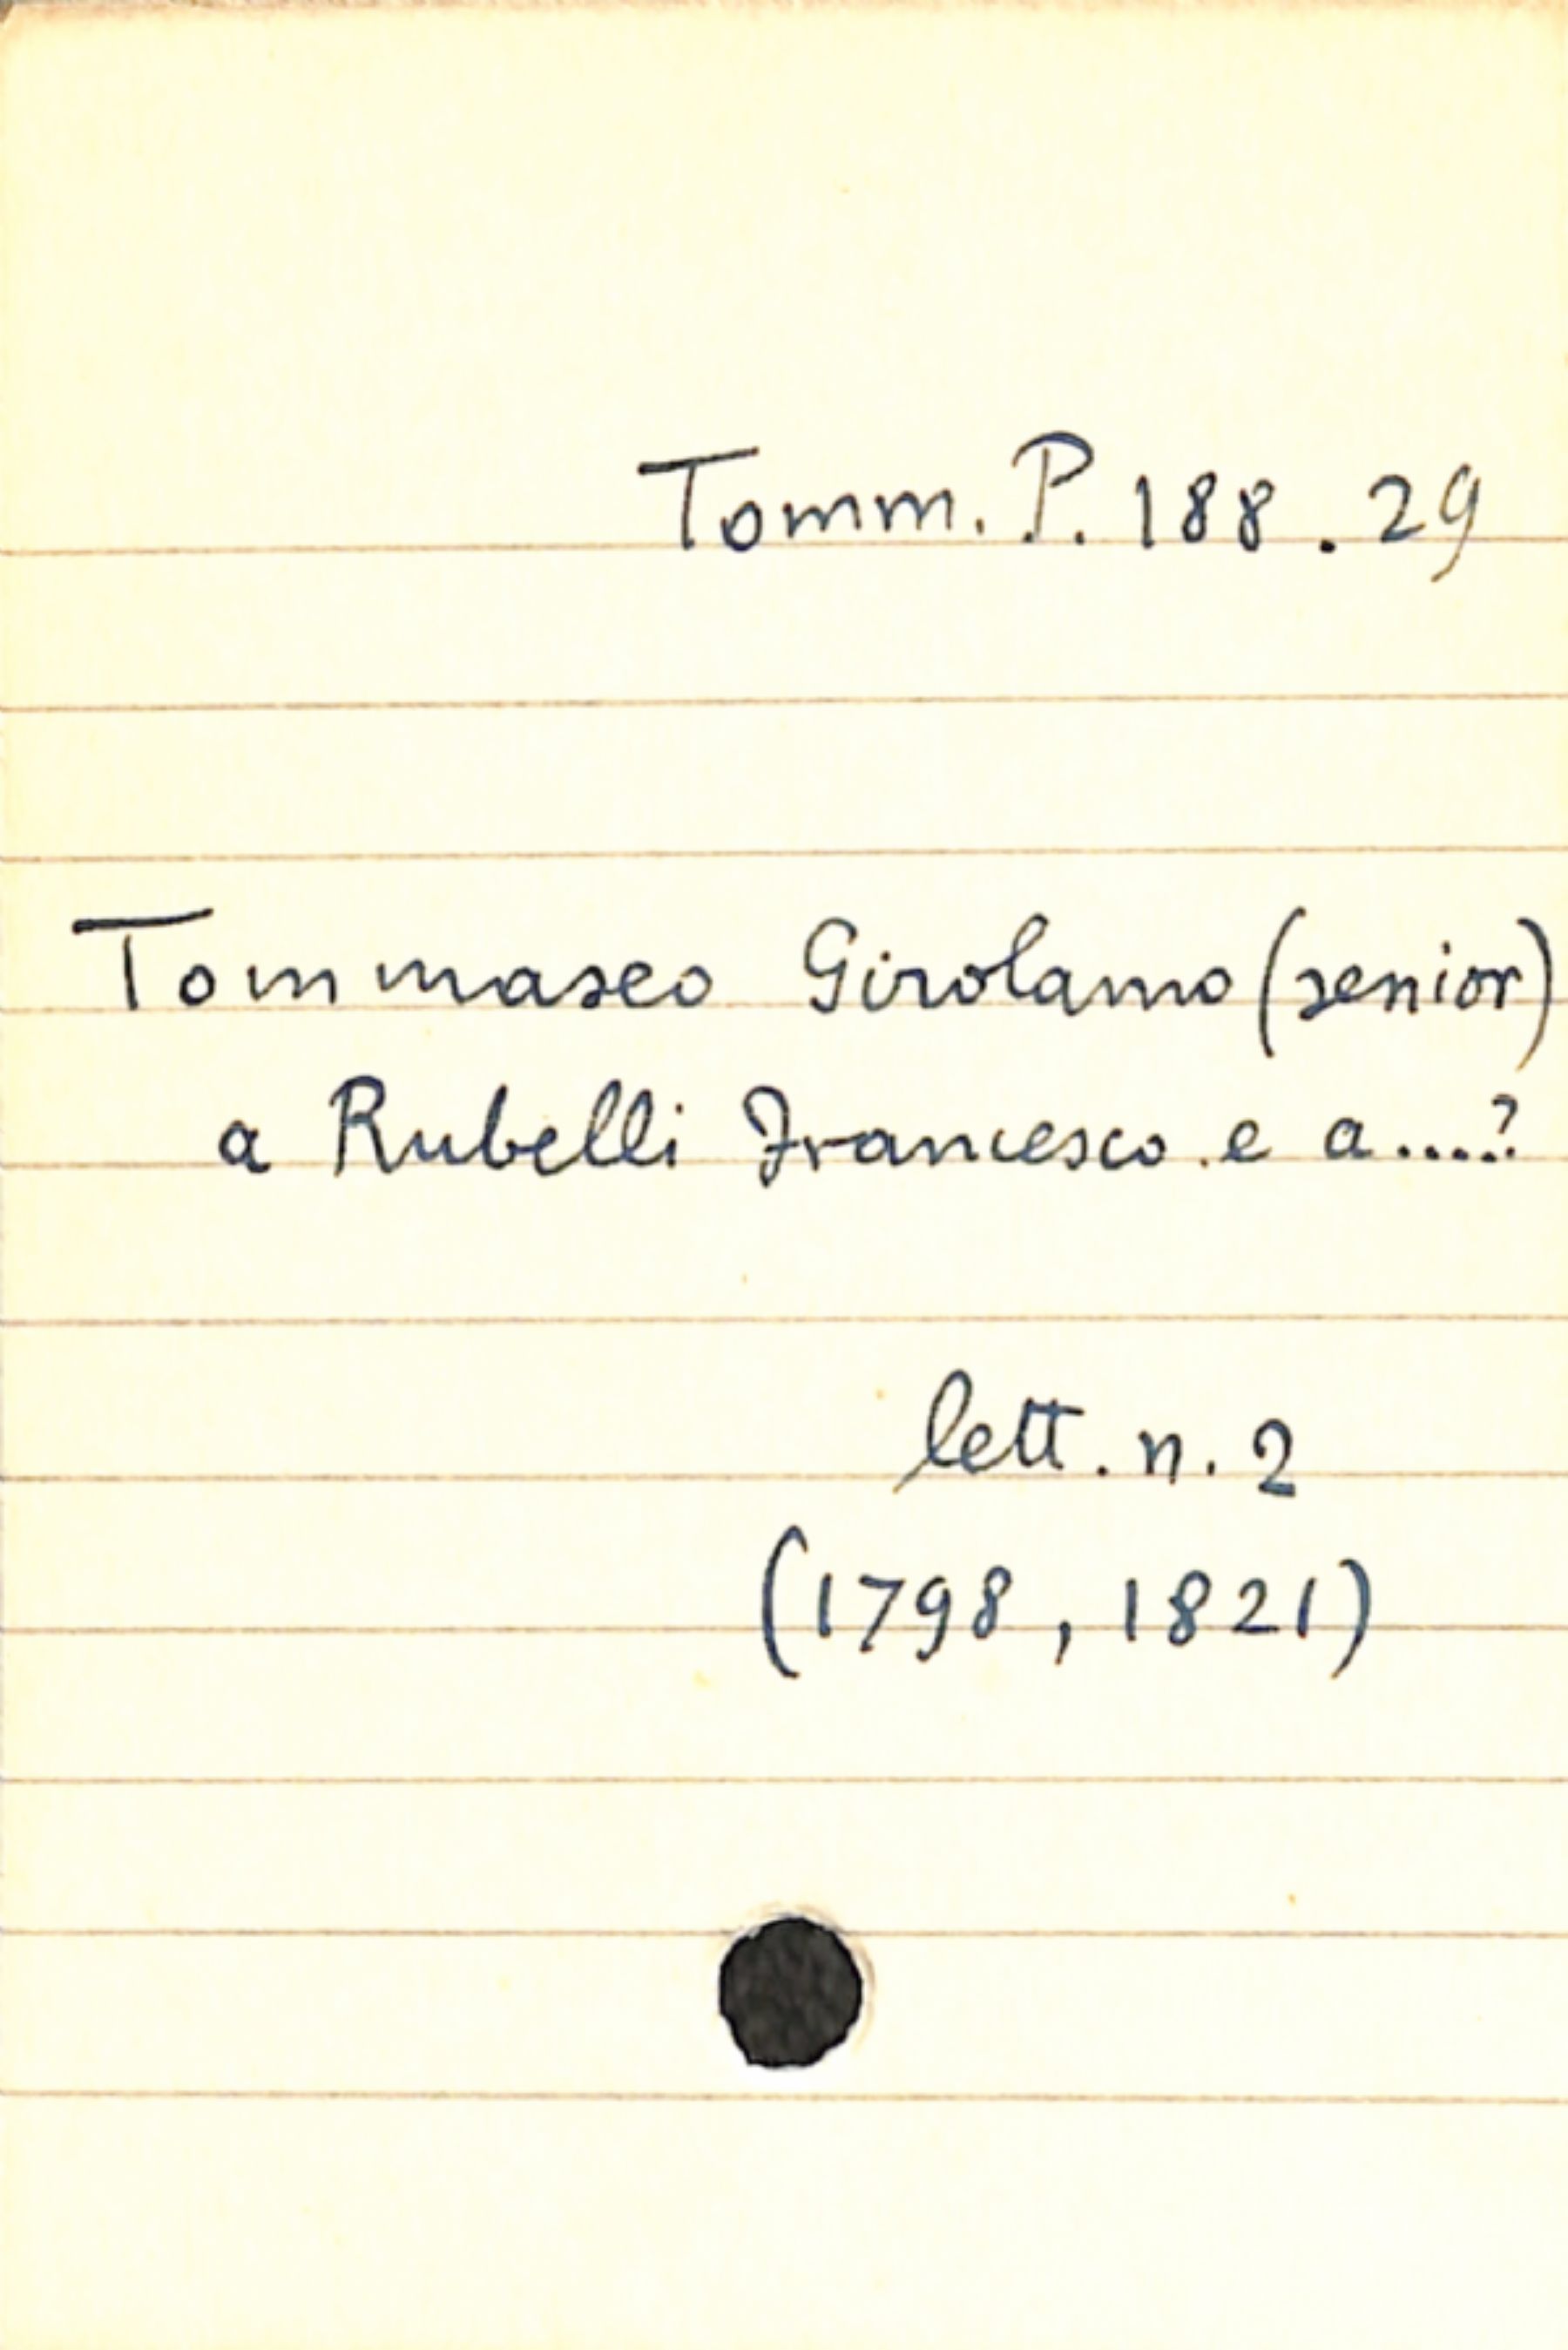 Tomm. P. 188. 29
Tommaseo Girolamo (senior)
a Rubelli Francesco e a....?
lett. n. 2
(1798, 1821)